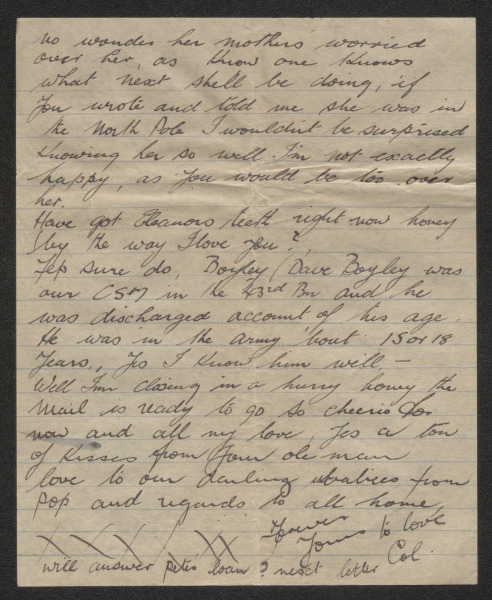 no wonder her mothers worried
over her, as know one knows
what next shell be doing, if
you wrote and told me she was in
the North Pole I wouldn't be surprised
knowing her so well. I'm not exactly
happy, as you would be too over
her.
Have got Eleanors teeth right now honey
by the way I love you?,
Yep sure do, Boyley (Dave Boyley was
our CSM in the 43rd Bn and he
was discharged account of his age.
He was in the army 'bout 15 or 18
years., Yes I know him well —
Well I'm closing in a hurry honey the
mail is ready to go so cheerio for
now and all my love, Yes a ton
of kisses from your ole man
love to our darling from
Pop and regards to all home,
Yours to love
Yours
Col.
XXXXXX
will answer Petes ? next letter